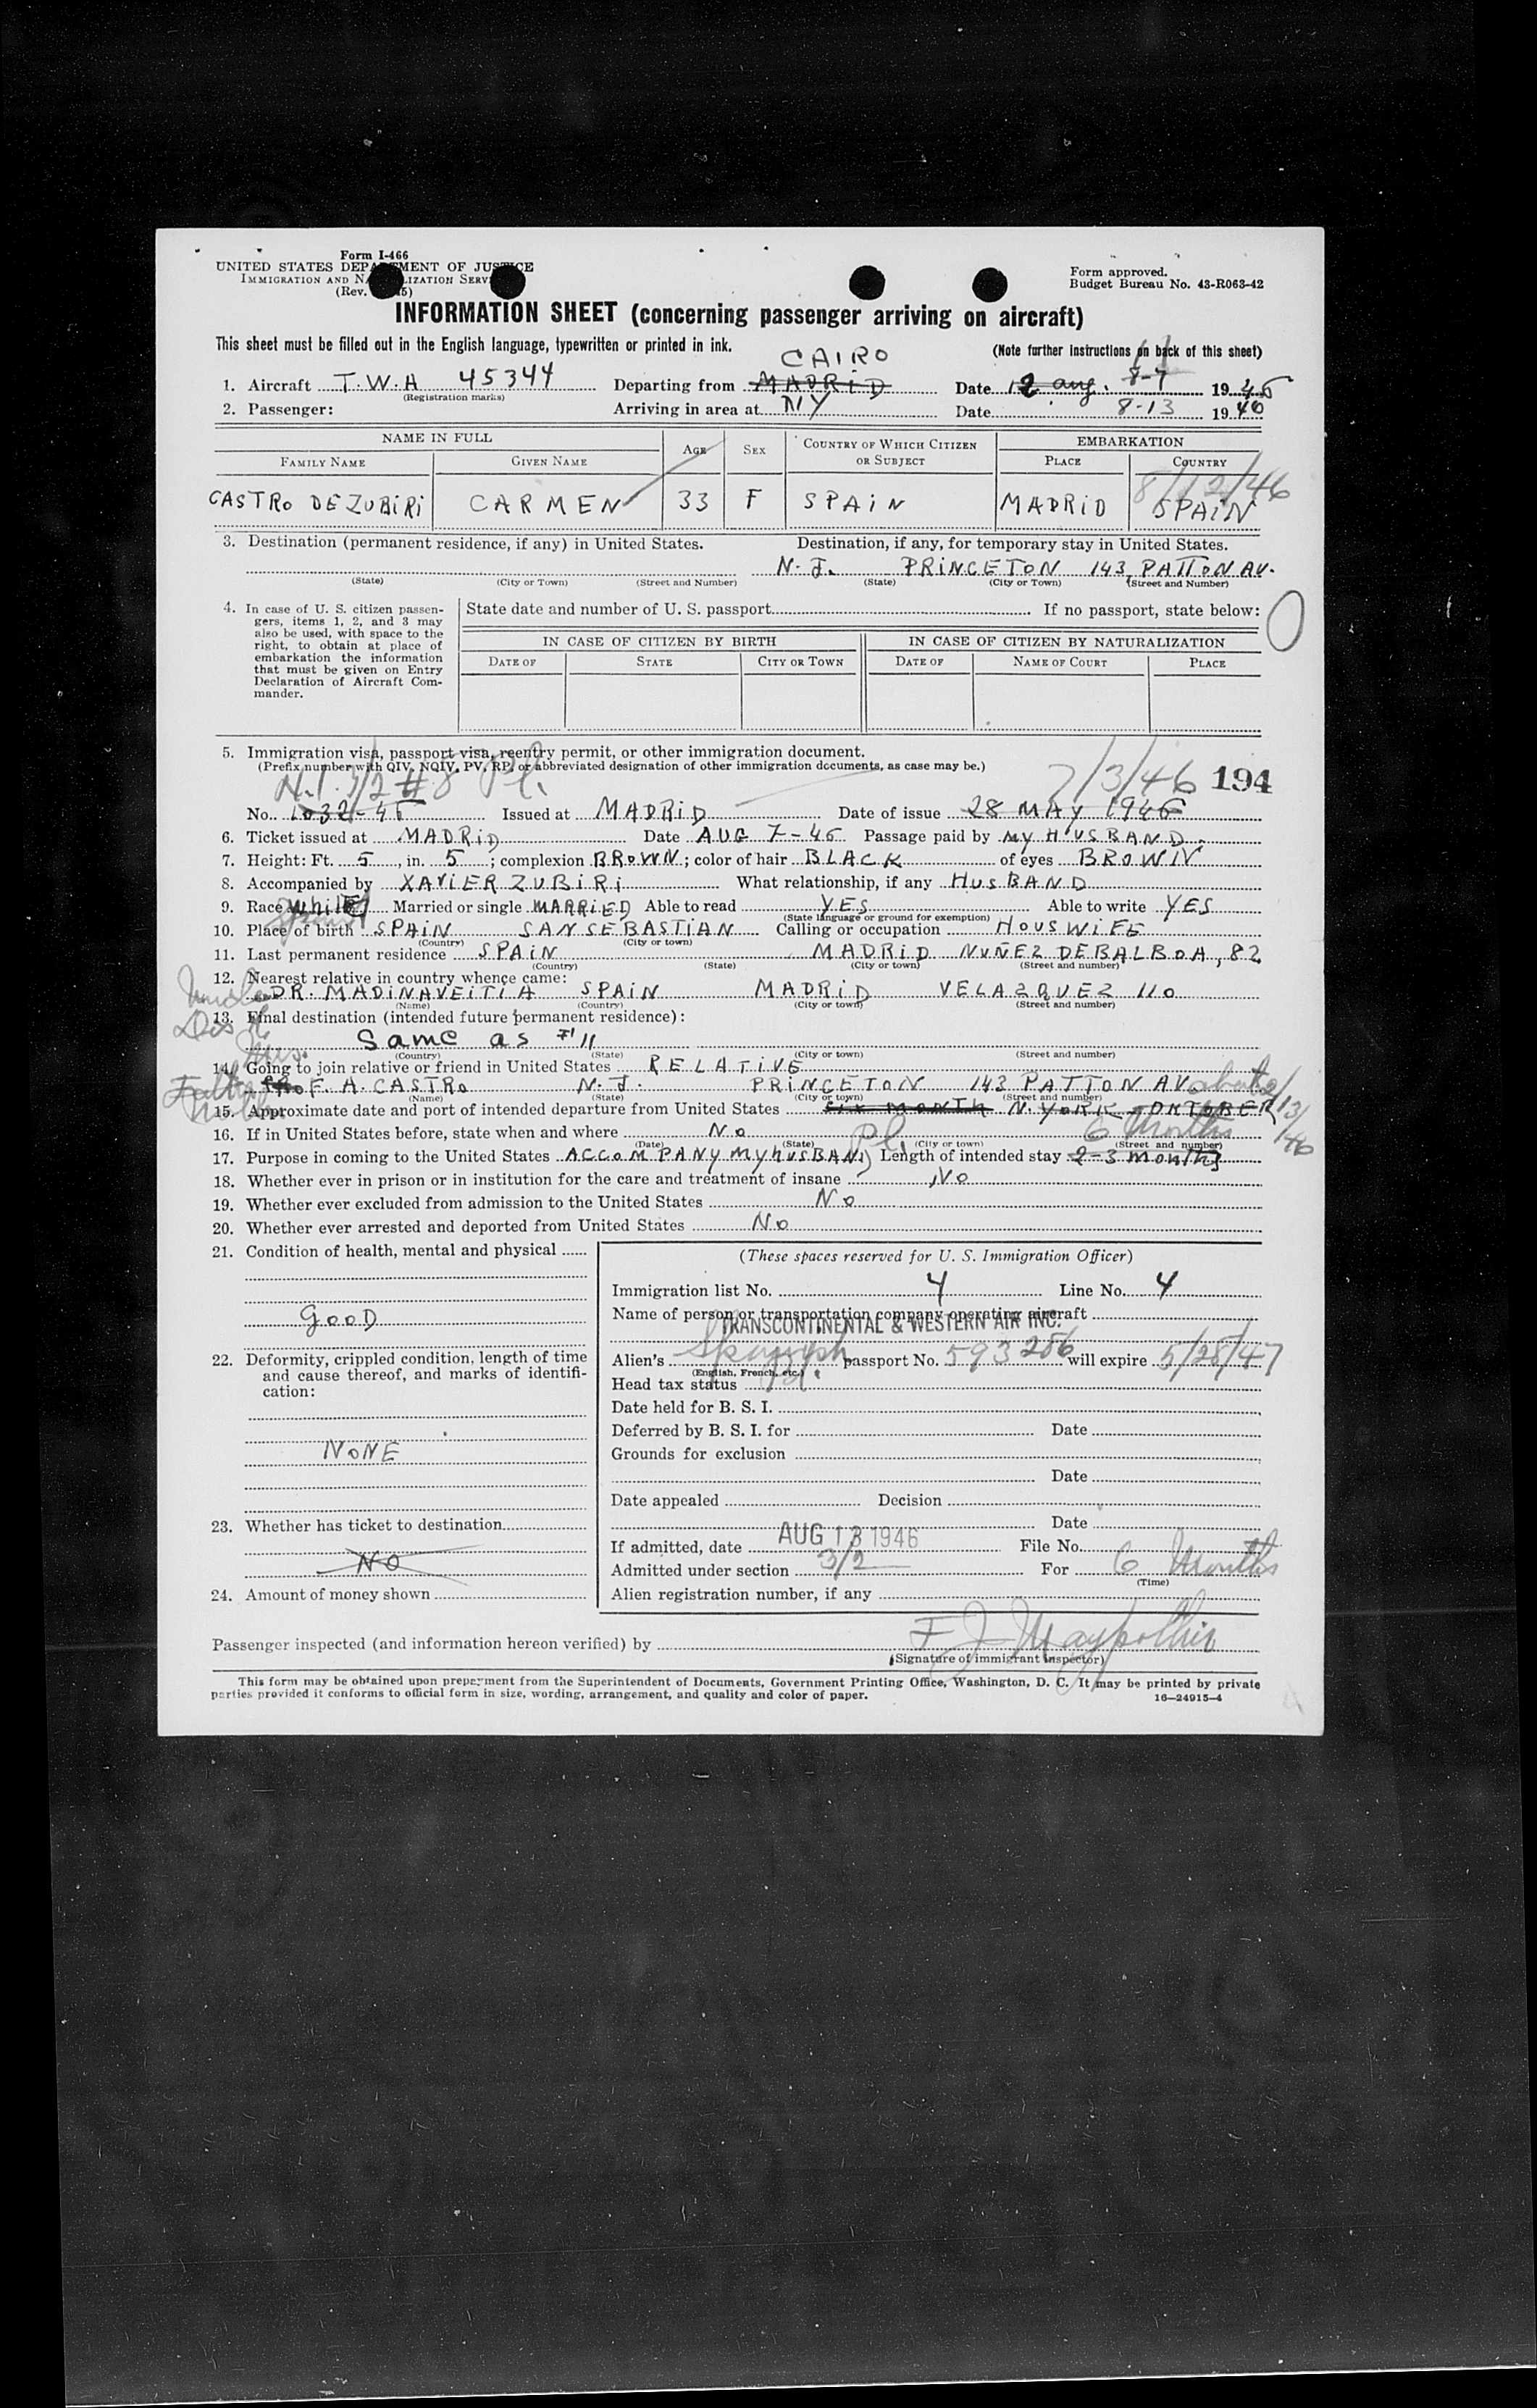 Form I-466
UNITED STATES DEPARTMENT OF JUSTICE
IMMIGRATION AND NATURALIZATION SERVICE
(Rev.
Form approved.
Budget Bureau No. 43-R063-42
INFORMATION SHEET (concerning passenger arriving on aircraft)
This sheet must be filled out in the English language, typewritten or printed in ink.
(Note further instructions on back of this sheet)
CAIRO
1. Aircraft T.W.A 45344 Departing from MADRID Date 12 aug. 8-7 1946
(Registration marks)
2. Passenger: Arriving in area at NY Date 8-13 1946
NAME IN FULL AGE SEX COUNTRY OF WHICH CITIZEN OR SUBJECT EMBARKATION
FAMILY NAME GIVEN NAME PLACE COUNTRY
8/12/46
CASTRO DE ZUBIRI CARMEN 33 F SPAIN MADRID SPAIN
3. Destination (permanent residence, if any) in United States. Destination, if any, for temporary stay in United States.
N.J. PRINCETON 143, PATTON AV.
(State) (City or Town) (Street and Number) (State) (City or Town) (Street and Number)
4. In case of U. S. citizen passen-
gers, items 1, 2, and 3 may
also be used, with space to the
right, to obtain at place of
embarkation the information
that must be given on Entry
Declaration of Aircraft Com-
mander.
State date and number of U. S. passport If no passport, state below:
IN CASE OF CITIZEN BY BIRTH IN CASE OF CITIZEN BY NATURALIZATION
DATE OF STATE CITY OR TOWN DATE OF NAME OF COURT PLACE
5. Immigration visa, passport visa, reentry permit, or other immigration document.
(Prefix number with QIV, NQIV, PV, RP, or abbreviated designation of other immigration documents, as case may be.)
N.I. 3/2 #8 Pl. 7/3/46 194
No. 1032-45 Issued at MADRID Date of issue 28 MAY 1946
6. Ticket issued at MADRID Date AUG 7-46 Passage paid by MY HUSBAND.
7. Height: Ft. 5, in. 5; complexion BROWN; color of hair BLACK of eyes BROWN
8. Accompanied by XAVIER ZUBIRI What relationship, if any HUSBAND
9. Race White Married or single MARRIED Able to read YES Able to write YES
(State language or ground for exemption)
10. Place of birth SPAIN SAN SEBASTIAN Calling or occupation HOUSWIFE
(Country) (City or town)
11. Last permanent residence SPAIN MADRID NUÑEZ DE BALBOA, 82
(Country) (State) (City or town) (Street and number)
12. Nearest relative in country whence came:
Uncle DR. MADINAVEITIA SPAIN MADRID VELAZQUEZ 110
(Name) (Country) (City or town) (Street and number)
13. Final destination (intended future permanent residence):
Same as #11
(Country) (State) (City or town) (Street and number)
14. Going to join relative or friend in United States RELATIVE
Father PROF. A. CASTRO N.J. PRINCETON 143 PATTON AV.
(Name) (State) (City or town) (Street and number)
15. Approximate date and port of intended departure from United States six month N. YORK - OKTOBER about 2/13/46
16. If in United States before, state when and where No
(Date) (State) (City or town) (Street and number)
6 Months
17. Purpose in coming to the United States ACCOMPANY MY HUSBAND Pl. Length of intended stay 2-3 months
18. Whether ever in prison or in institution for the care and treatment of insane No
19. Whether ever excluded from admission to the United States No
20. Whether ever arrested and deported from United States No
21. Condition of health, mental and physical
GOOD
22. Deformity, crippled condition, length of time
and cause thereof, and marks of identifi-
cation:
NONE
23. Whether has ticket to destination
NO
24. Amount of money shown
(These spaces reserved for U. S. Immigration Officer)
Immigration list No. 4 Line No. 4
Name of person or transportation company operating aircraft
TRANSCONTINENTAL & WESTERN AIR INC.
Alien's Spanish passport No. 593286 will expire 5/28/47
(English, French, etc.)
Head tax status Pl.
Date held for B. S. I.
Deferred by B. S. I. for Date
Grounds for exclusion
Date
Date appealed Decision
Date
If admitted, date AUG 13 1946 File No.
Admitted under section 3/2 For 6 Months
(Time)
Alien registration number, if any
Passenger inspected (and information hereon verified) by
(Signature of immigrant inspector)
This form may be obtained upon prepayment from the Superintendent of Documents, Government Printing Office, Washington, D. C. It may be printed by private
parties provided it conforms to official form in size, wording, arrangement, and quality and color of paper.
16—24915-4